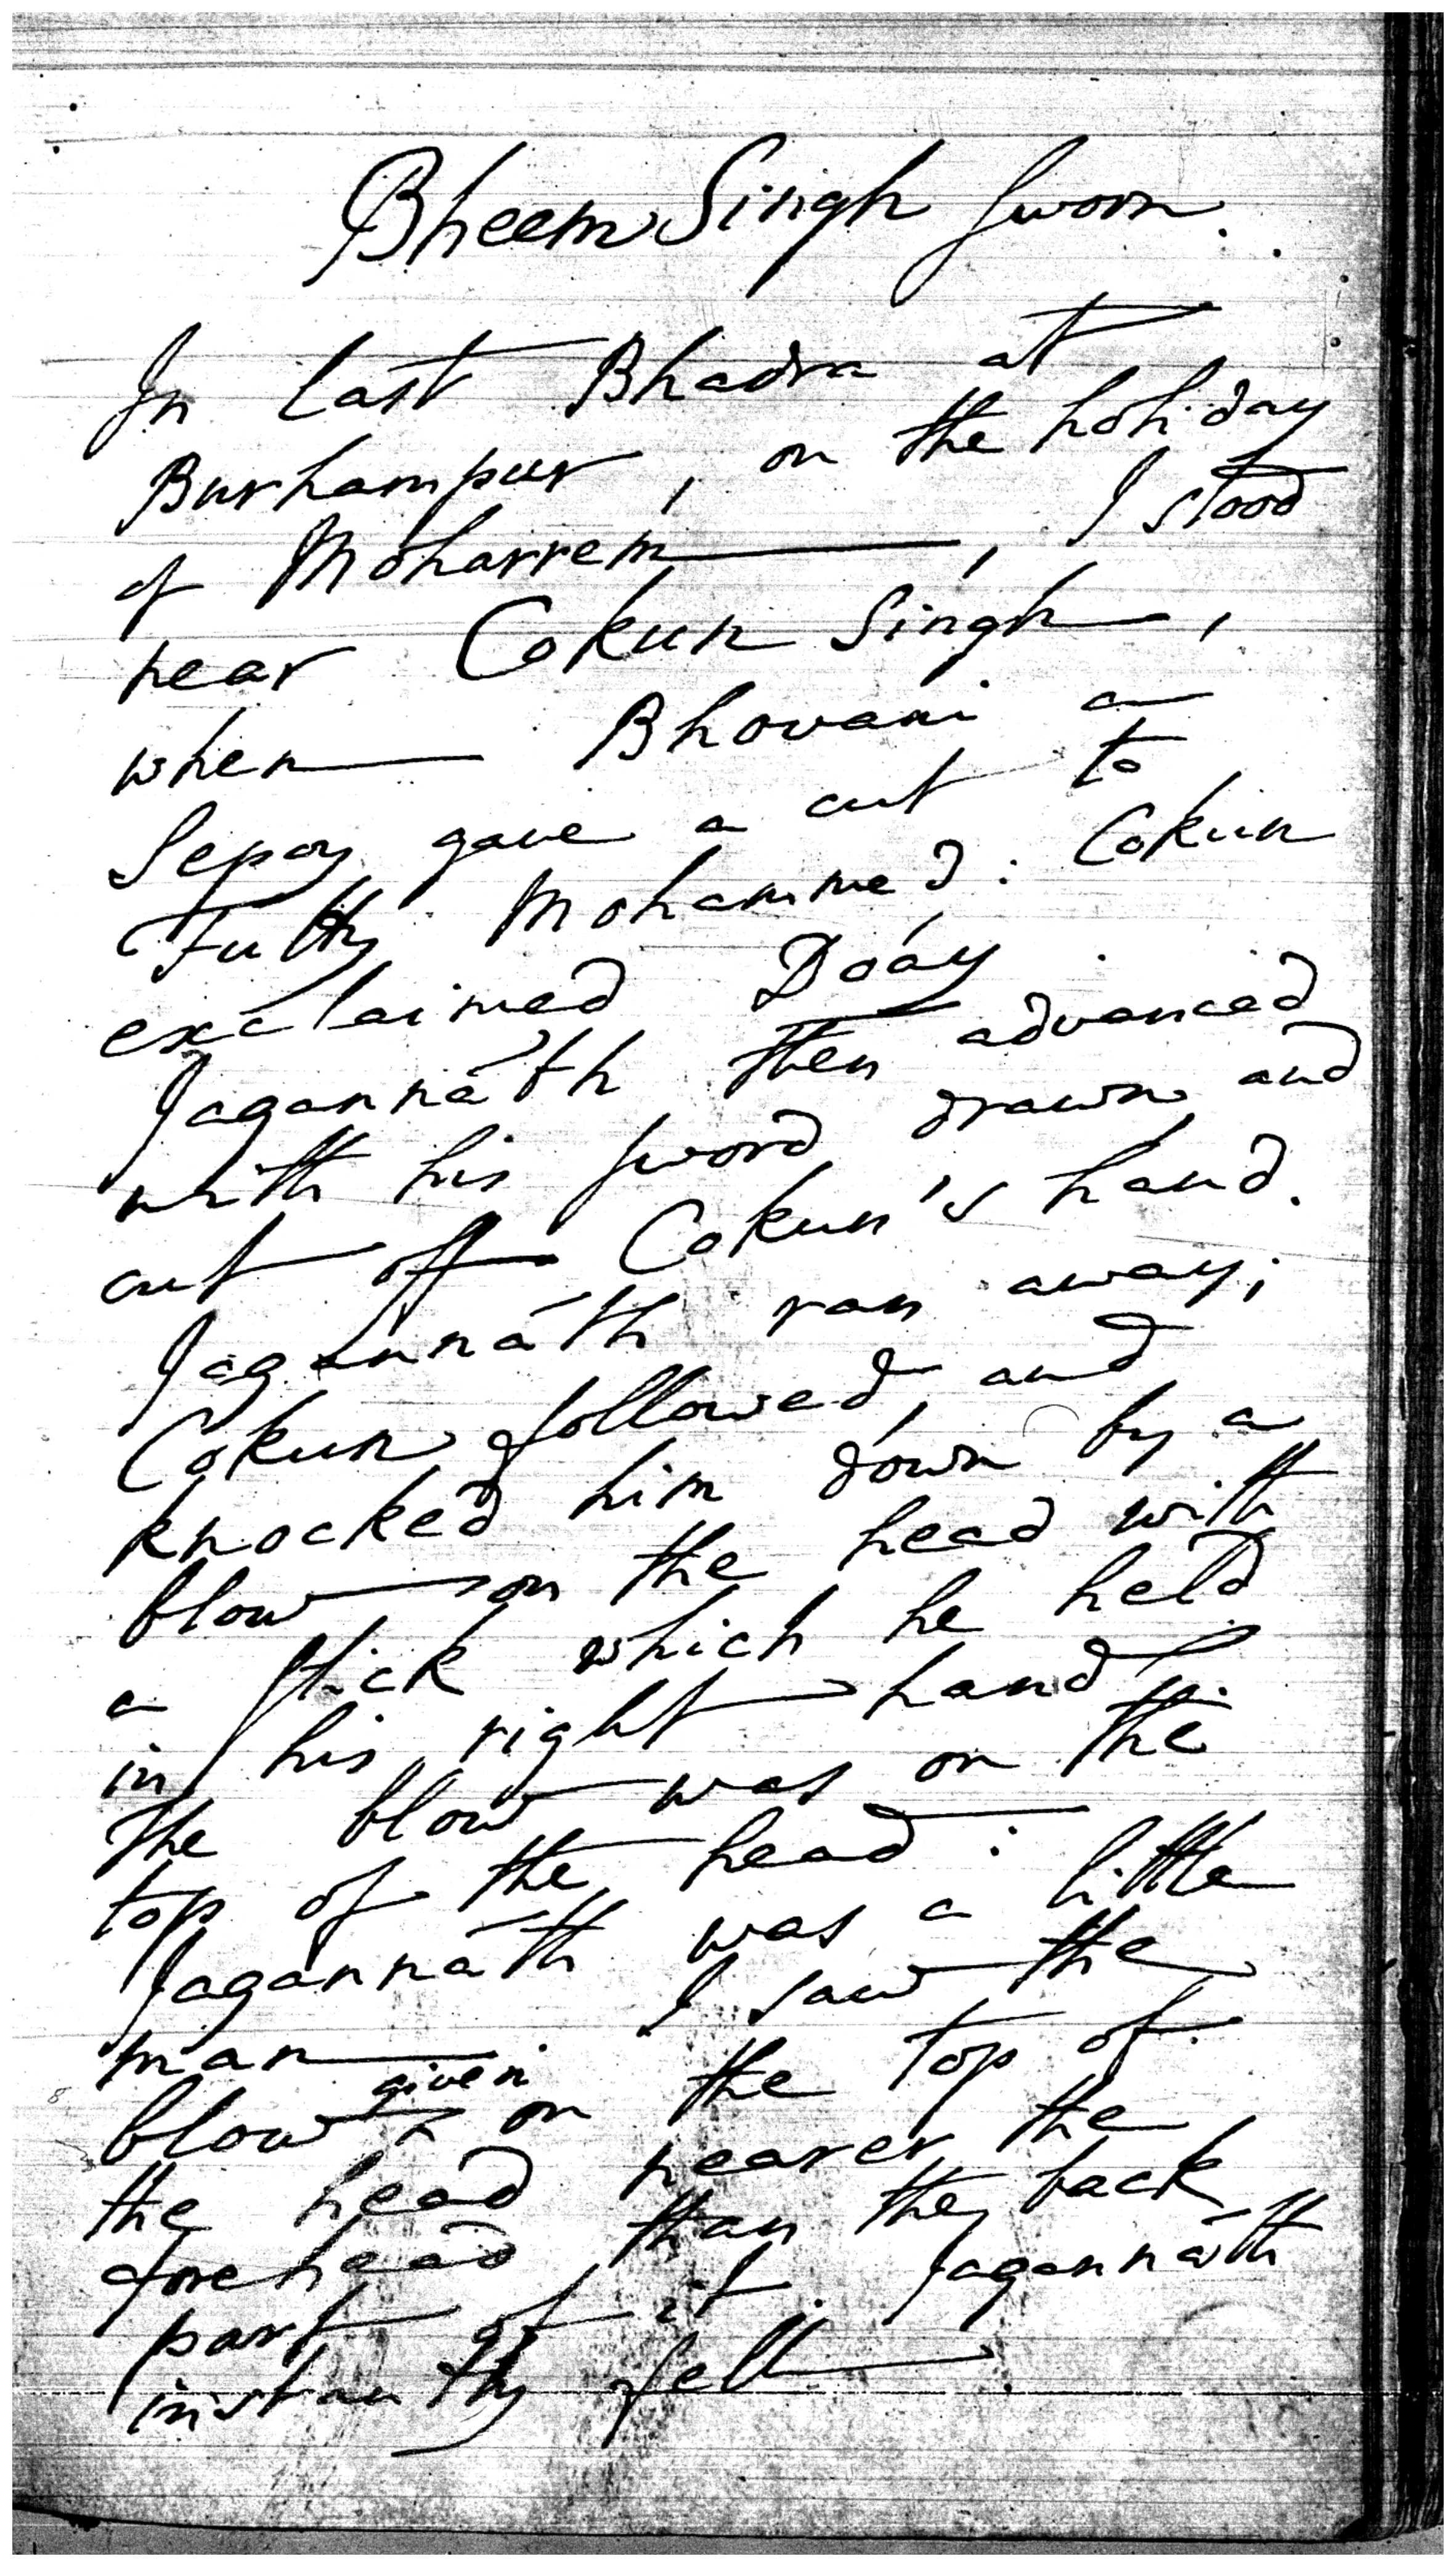 Bheem Singh sworn.
In last Bhadra at
Burhampur, on the holiday
of Moharrem, I stood
near Cokun Singh,
when Bhovani a
Sepoy gave a cut to
Futty Mohammed: Cokun
exclaimed Dóáy
Jagannáth then advanced
with his sword drawn and
cut off Cokun's hand.
Jagannáth ran away;
Cokun followed, and
knocked him down by a
blow on the head with
a stick which he held
in his right hand.
The blow was on the
top of the head:
Jagannáth was a little
man I saw the
blow given on the top of
the head nearer the
forehead than the back
part of it. Jagannáth
instantly fell